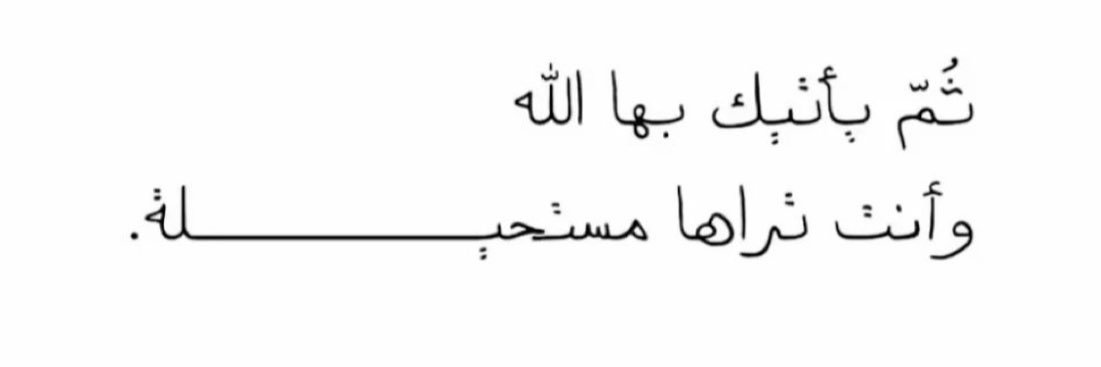 ثُمّ يأتيك بها الله
وأنت تراها مستحيـــــــــــــــلة.